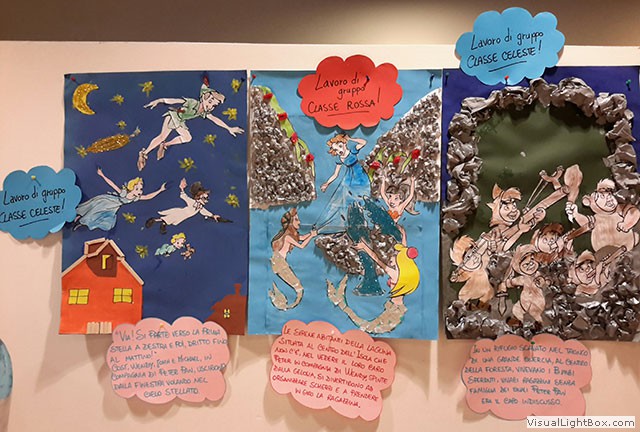 Lavoro di gruppo
CLASSE CELESTE!
Lavoro di
gruppo
CLASSE ROSSA!
Lavoro di gruppo
CLASSE CELESTE!
"VIA! SI PARTE VERSO LA PRIMA
STELLA A DESTRA E POI, DRITTO FINO
AL MATTINO!"
COSÌ, WENDY, JOHN E MICHAEL, IN
COMPAGNIA DI PETER PAN, USCIRONO
DALLA FINESTRA VOLANDO NEL
CIELO STELLATO.
LE SIRENE ABITANTI DELLA LAGUNA
SITUATA AL CENTRO DELL'ISOLA CHE
NON C'È, NEL VEDERE IL LORO CARO
PETER IN COMPAGNIA DI WENDY, SPINTE
DALLA GELOSIA, SI DIVERTONO AD
ORGANIZZARE SCHERZI E A PRENDERE
IN GIRO LA RAGAZZINA.
IN UN RIFUGIO SCAVATO NEL TRONCO
DI UNA GRANDE QUERCIA, AL CENTRO
DELLA FORESTA, VIVEVANO I BIMBI
SPERDUTI, VIVACI RAGAZZINI SENZA
FAMIGLIA DEI QUALI PETER PAN
ERA IL CAPO INDISCUSSO.
VisualLightBox.com